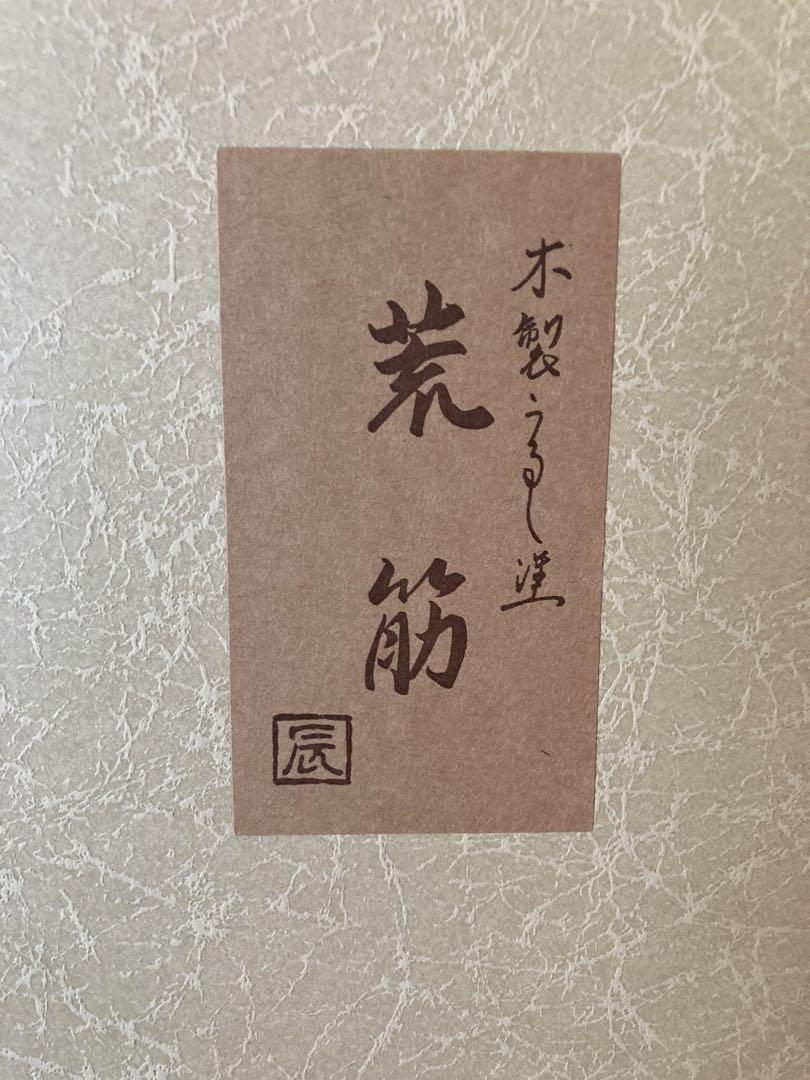 木製うるし塗
荒筋
辰